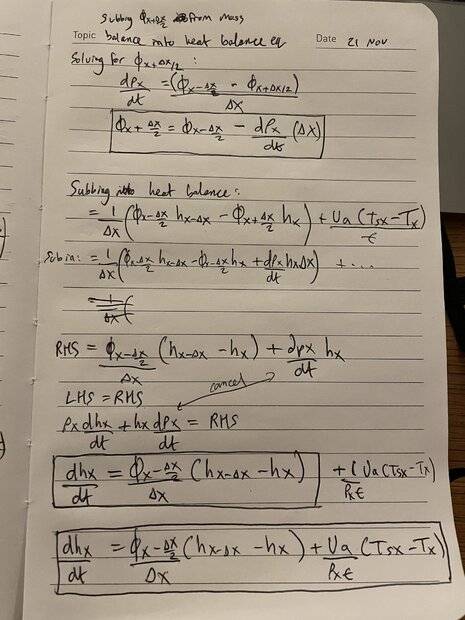 Subbing ϕx+Δx/2 from mass
Topic balance into heat balance eq Date 21 Nov
Solving for ϕx+Δx/2 :
dρx/dt = (ϕx-Δx/2 - ϕx+Δx/2)/Δx
ϕx+Δx/2 = ϕx-Δx/2 - dρx/dt (Δx)
Subbing into heat balance:
= 1/Δx (ϕx-Δx/2 hx-Δx - ϕx+Δx/2 hx) + Ua (Tsx-Tx)/ε
Sub in: = 1/Δx (ϕx-Δx/2 hx-Δx - ϕx-Δx/2 hx + dρx/dt hxΔx) + ...
= 1/Δx (
RHS = ϕx-Δx/2 /Δx (hx-Δx - hx) + dρx/dt hx
cancel
LHS = RHS
ρx dhx/dt + hx dρx/dt = RHS
dhx/dt = ϕx-Δx/2 /Δx (hx-Δx - hx) + 1/ρxε Ua (Tsx-Tx)
dhx/dt = ϕx-Δx/2 /Δx (hx-Δx - hx) + Ua/ρxε (Tsx-Tx)